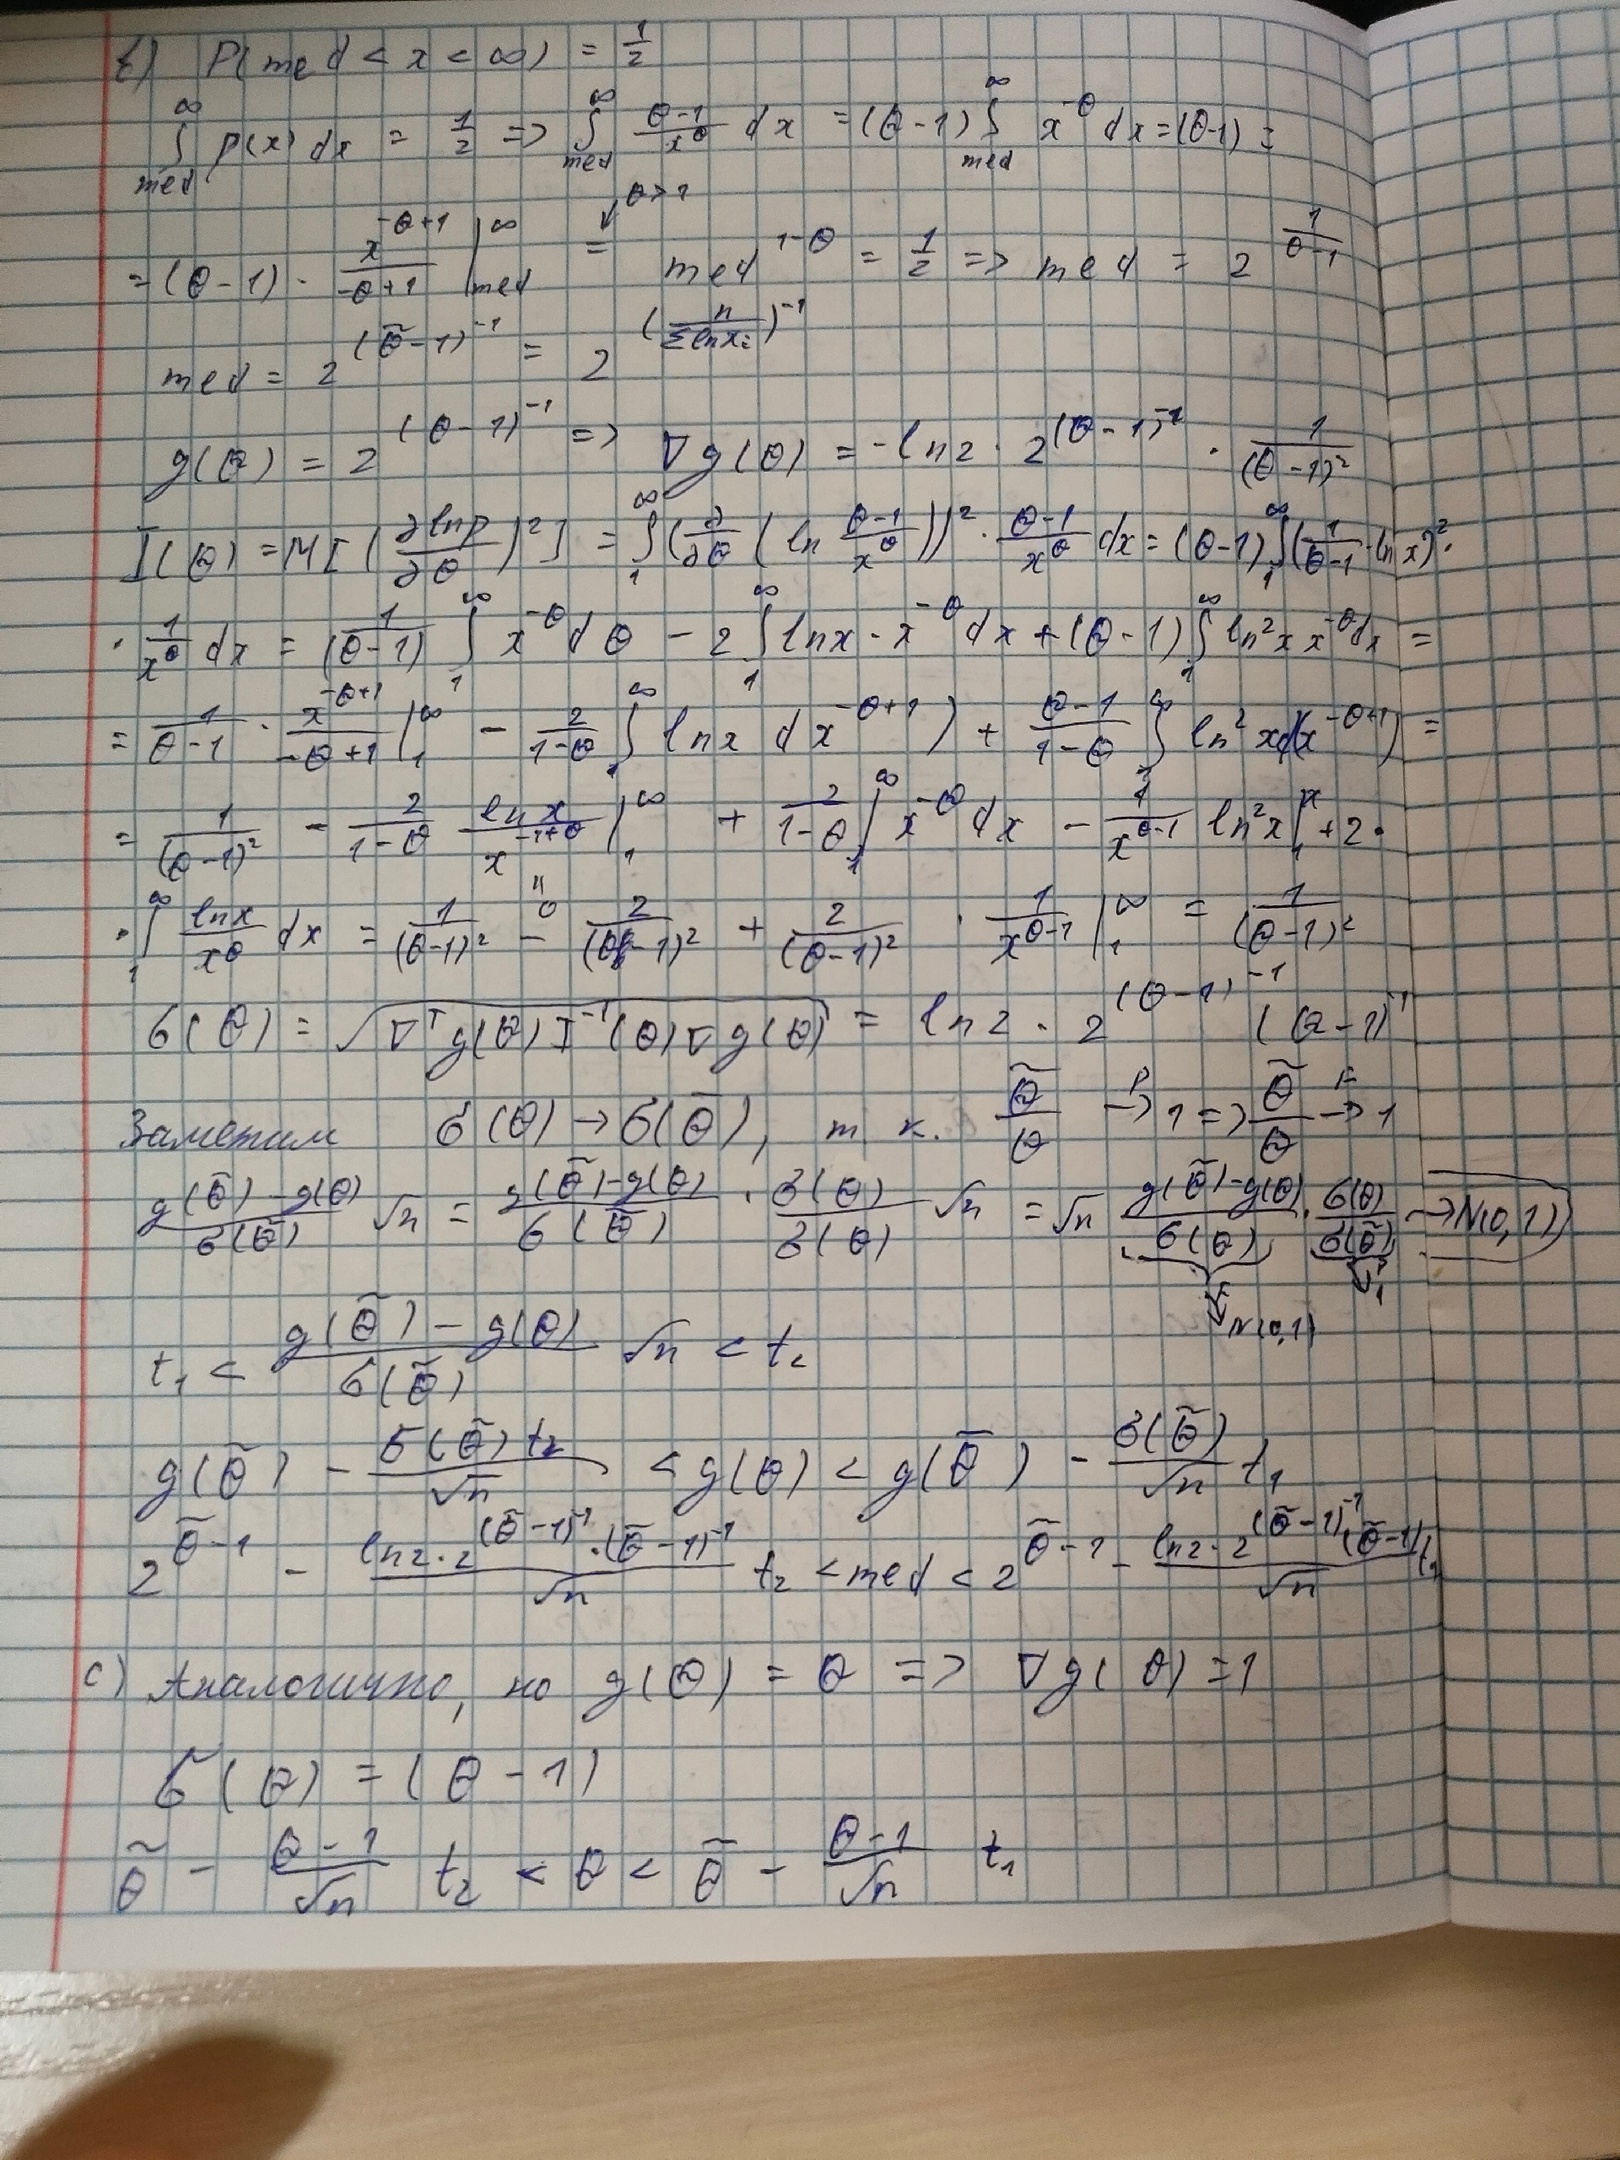 b) P(med < x < ∞) = 1/2
∫_med^∞ p(x) dx = 1/2 => ∫_med^∞ (θ-1)/x^θ dx = (θ-1) ∫_med^∞ x^{-θ} dx = (θ-1) =
= (θ-1) · x^{-θ+1}/(-θ+1) |_med^∞ = (θ>1) med^{1-θ} = 1/2 => med = 2^{1/(θ-1)}
med = 2^{(θ̃-1)^{-1}} = 2^{(n/Σln x_i)^{-1}}
g(θ) = 2^{(θ-1)^{-1}} => ∇g(θ) = -ln2 · 2^{(θ-1)^{-1}} · 1/(θ-1)^2
I(θ) = M[(∂lnp/∂θ)^2] = ∫_1^∞ (∂/∂θ (ln (θ-1)/x^θ))^2 · (θ-1)/x^θ dx = (θ-1) ∫_1^∞ (1/(θ-1) - ln x)^2 ·
· 1/x^θ dx = 1/(θ-1) ∫_1^∞ x^{-θ} dθ - 2 ∫_1^∞ lnx · x^{-θ} dx + (θ-1) ∫_1^∞ ln^2 x x^{-θ} dx =
= 1/(θ-1) · x^{-θ+1}/(-θ+1) |_1^∞ - 2/(1-θ) ∫_1^∞ lnx d x^{-θ+1}) + (θ-1)/(1-θ) ∫_1^∞ ln^2 x d(x^{-θ+1}) =
= 1/(θ-1)^2 - 2/(1-θ) lnx/x^{-1+θ} |_1^∞ + 2/(1-θ) ∫_1^∞ x^{-θ} dx - 1/x^{θ-1} ln^2 x |_1^∞ + 2 ·
" 0
· ∫_1^∞ lnx/x^θ dx = 1/(θ-1)^2 - 2/(θ-1)^2 + 2/(θ-1)^2 · 1/x^{θ-1} |_1^∞ = 1/(θ-1)^2
б(θ) = √(∇^T g(θ) I^{-1}(θ) ∇g(θ)) = ln2 · 2^{(θ-1)^{-1}} ((θ-1)^{-1}
Заметим б(θ) → б(θ̃), т к. θ̃/θ →^P 1 => θ̃/θ →^F 1
(g(θ̃)-g(θ))/б(θ̃) √n = (g(θ̃)-g(θ))/б(θ̃) · б(θ)/б(θ) √n = √n (g(θ̃)-g(θ))/б(θ) · б(θ)/б(θ̃) → N(0,1)
F N(0,1) P 1
t_1 < (g(θ̃) - g(θ))/б(θ̃) √n < t_2
g(θ̃) - б(θ̃) t_2/√n < g(θ) < g(θ̃) - б(θ̃)/√n t_1
2^{θ̃-1} - ln2 · 2^{(θ̃-1)^{-1}} · (θ̃-1)^{-1}/√n t_2 < med < 2^{θ̃-1} - ln2 · 2^{(θ̃-1)^{-1}} (θ̃-1)/√n t_1
c) Аналогично, но g(θ) = θ => ∇g(θ) = 1
б(θ) = (θ-1)
θ̃ - (θ-1)/√n t_2 < θ < θ̃ - (θ-1)/√n t_1